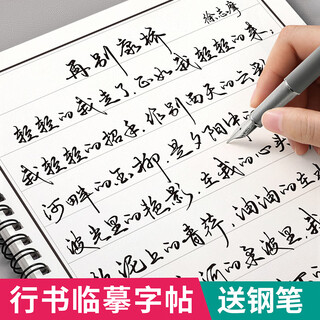 再别康桥
徐志摩
轻轻的我走了,正如我轻轻的来,
我轻轻的招手,作别西天的云彩
河畔的金柳,是夕阳中
波光里的艳影,在我的心头
泥上的青荇,油油的在
的柔波里,我
行书临摹字帖
送钢笔